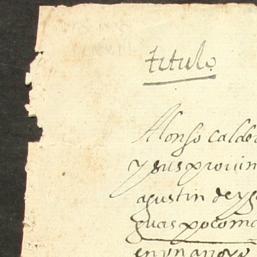 titulo
Alonso calde
y sus provin
agustin de y
guas pocoma
en una nove